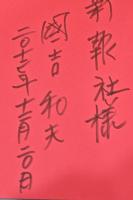 新報社様
國吉和夫
二〇十二年十二月二〇日